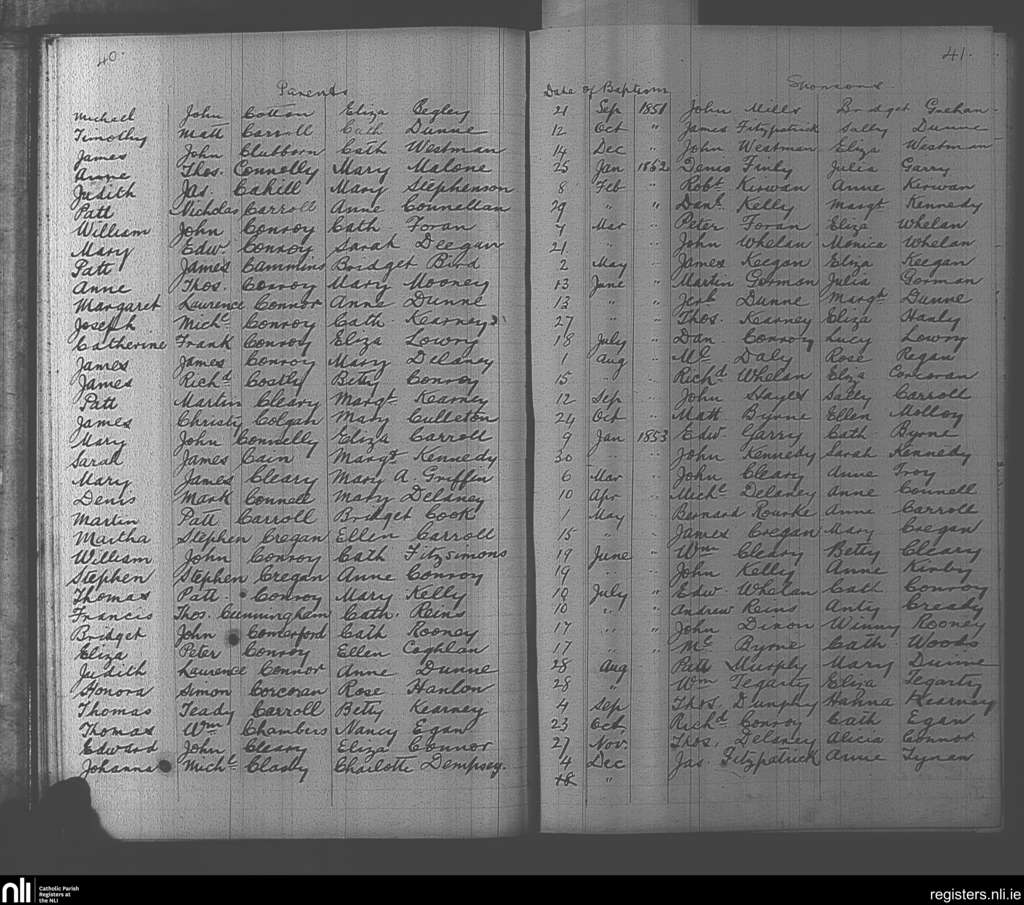 40.
Parents
Michael John Cotton Eliza Begley
Timothy Matt Carroll Cath Dunne
James John Clubborn Cath Westman
Anne Thos. Connolly Mary Malone
Judith Jas. Cahill Mary Stephenson
Patt Nicholas Carroll Anne Connellan
William John Conroy Cath Foran
Mary Edw. Conroy Sarah Deegan
Patt James Cammins Bridget Bird
Anne Thos. Conroy Mary Mooney
Margaret Laurence Connor Anne Dunne
Joseph Michl Conroy Cath Kearney
Catherine Frank Conroy Eliza Lowry
James James Conroy Mary Delaney
James Richd Coatly Betty Conroy
Patt Martin Cleary Margt Kearney
James Christy Colgan Mary Culleton
Mary John Connelly Eliza Carroll
Sarah James Cain Margt Kennedy
Mary James Cleary Mary A Griffin
Denis Mark Connell Mary Delaney
Martin Patt Carroll Bridget Cook
Martha Stephen Cregan Ellen Carroll
William John Conroy Cath Fitzsimons
Stephen Stephen Cregan Anne Conroy
Thomas Patt. Conroy Mary Kelly
Francis Thos. Cunningham Cath. Reins
Bridget John Comerford Cath Rooney
Eliza Peter Conroy Ellen Coghlan
Judith Laurence Connor Anne Dunne
Honora Simon Corcoran Rose Hanlon
Thomas Teady Carroll Betty Kearney
Thomas Wm Chambers Nancy Egan
Edward John Cleary Eliza Connor
Johanna Michl Clasby Charlotte Dempsey.
41.
Date of Baptism Sponsors
21 Sep 1851 John Mills Bridget Geehan
12 Oct " James Fitzpatrick Sally Dunne
14 Dec " John Westman Eliza Westman
25 Jan 1852 Denis Finly Julia Garry
8 Feb " Robt Kirwan Anne Kirwan
29 " " Danl Kelly Margt Kennedy
7 Mar " Peter Foran Eliza Whelan
21 " " John Whelan Monica Whelan
2 May " James Keegan Eliza Keegan
13 June " Martin Gorman Julia Gorman
13 " " Dunne Margt Dunne
27 " " Thos. Kearney Eliza Hanly
18 July " Dan. Conroy Lucy Lowry
1 Aug " Ml Daly Rose Regan
15 " " Richd Whelan Eliza Corcoran
12 Sep " John Hayes Sally Carroll
24 Oct " Matt Byrne Ellen Molloy
9 Jan 1853 Edw. Garry Cath Byrne
30 " " John Kennedy Sarah Kennedy
6 Mar " John Cleary Anne Troy
10 Apr " Michl Delaney Anne Connell
1 May " Bernard Rourke Anne Carroll
15 " " James Cregan Mary Cregan
19 June " Wm Cleary Betty Cleary
19 " " John Kelly Anne Kirby
10 July " Edw. Whelan Cath Conroy
10 " " Andrew Reins Anty
17 " " John Dixon Winny Rooney
17 " " Ml Byrne Cath Woods
28 Aug Patt Murphy Mary Dunne
28 " Wm Fegarty Eliza Fegarty
4 Sep Thos. Dunphy Hanna Kearney
23 Oct. Richd Conroy Cath Egan
27 Nov. Thos. Delaney Alicia Connor
4 Dec Jas. Fitzpatrick Anne Tynan
18 "
nli Catholic Parish Registers at the NLI
registers.nli.ie